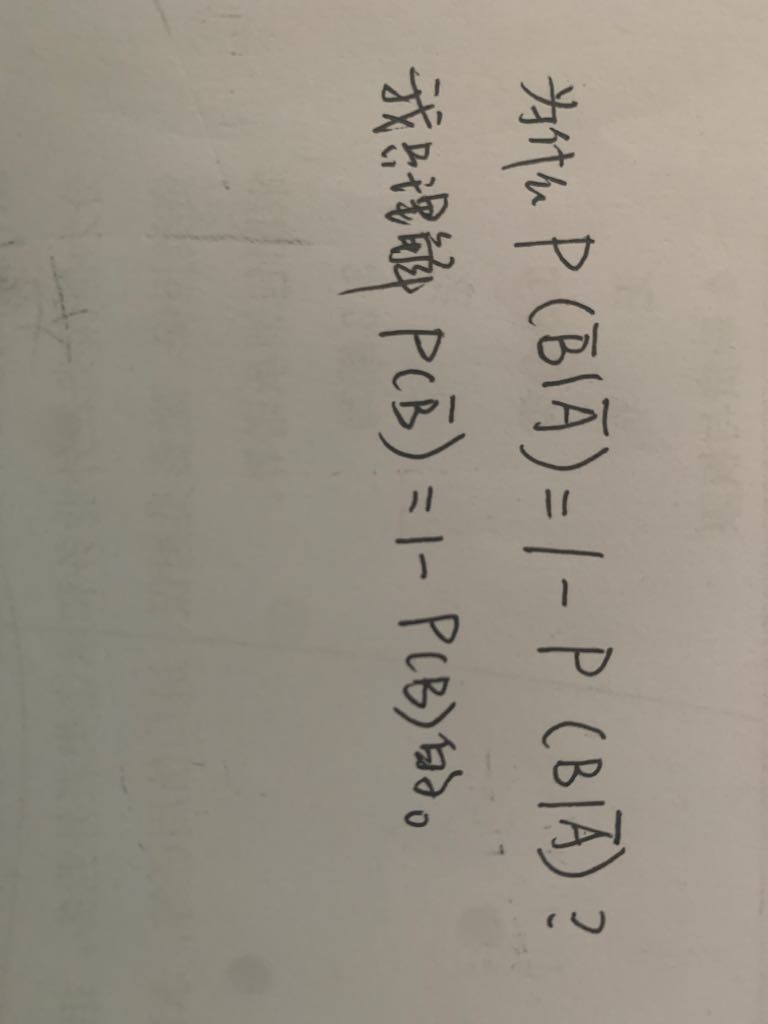 为什么 P(B̅|A̅)=1-P(B|A̅)?
我只理解 P(B̅)=1-P(B)的。